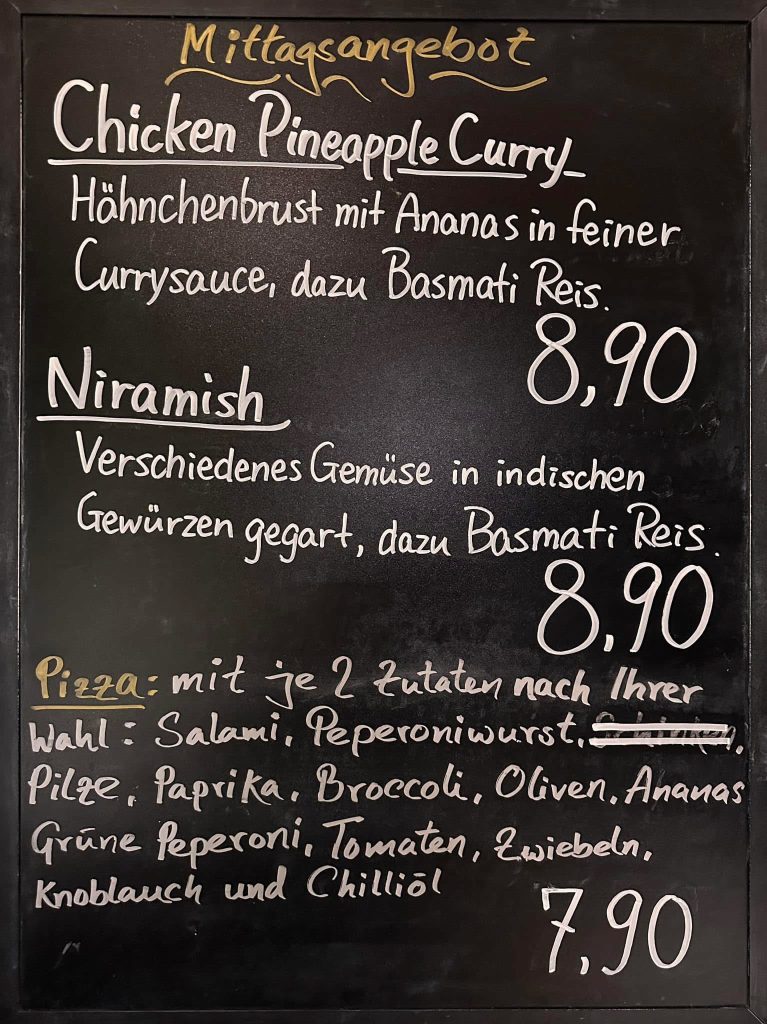 Mittagsangebot
Chicken Pineapple Curry
Hähnchenbrust mit Ananas in feiner
Currysauce, dazu Basmati Reis.
8,90
Niramish
Verschiedenes Gemüse in indischen
Gewürzen gegart, dazu Basmati Reis.
8,90
Pizza: mit je 2 Zutaten nach Ihrer
Wahl: Salami, Peperoniwurst, ,
Pilze, Paprika, Broccoli, Oliven, Ananas
Grüne Peperoni, Tomaten, Zwiebeln,
Knoblauch und Chilliöl
7,90